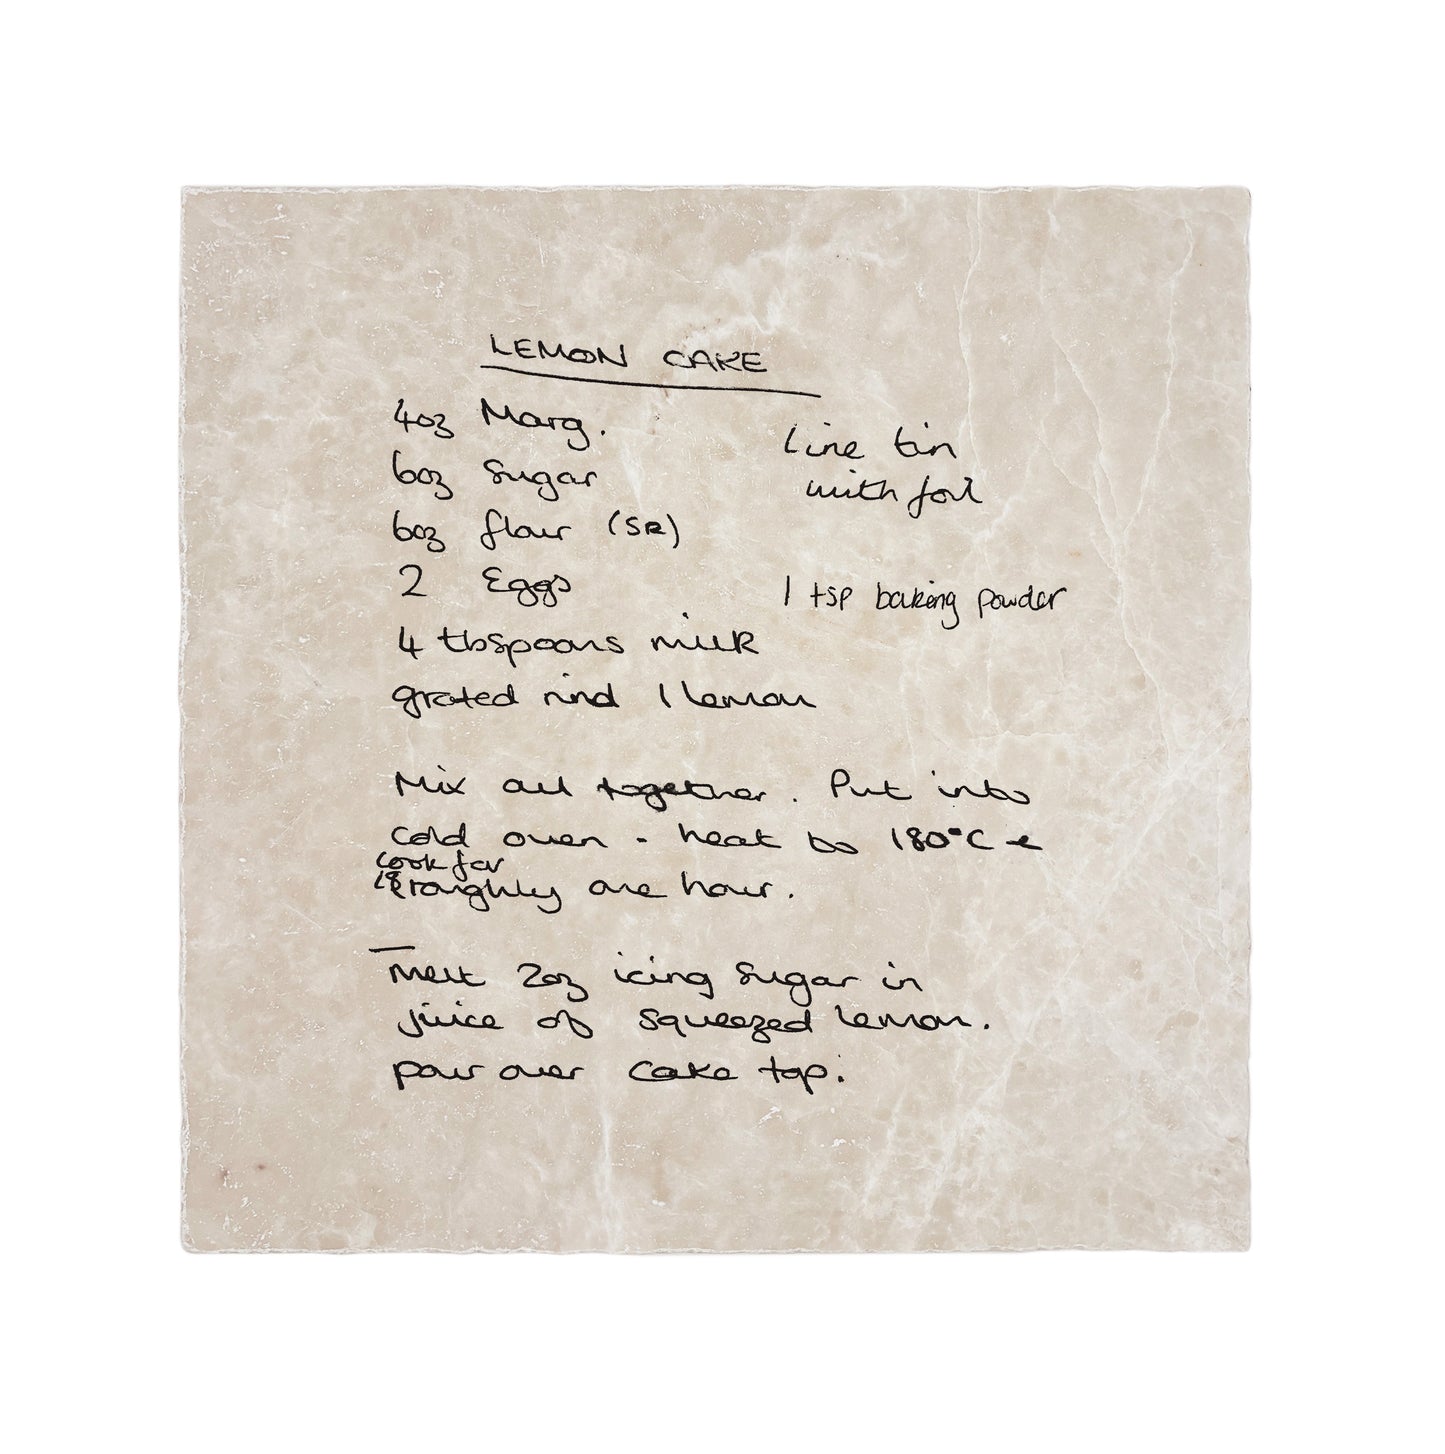 LEMON CAKE
4oz Marg.
6oz Sugar
6oz flour (SR)
2 Eggs
4 tbspoons milk
grated rind 1 lemon
Line tin
with foil
1 tsp baking powder
Mix all together. Put into
cold oven - heat to 180°C &
cook for
roughly one hour.
Melt 2oz icing sugar in
juice of squeezed lemon.
pour over cake top.